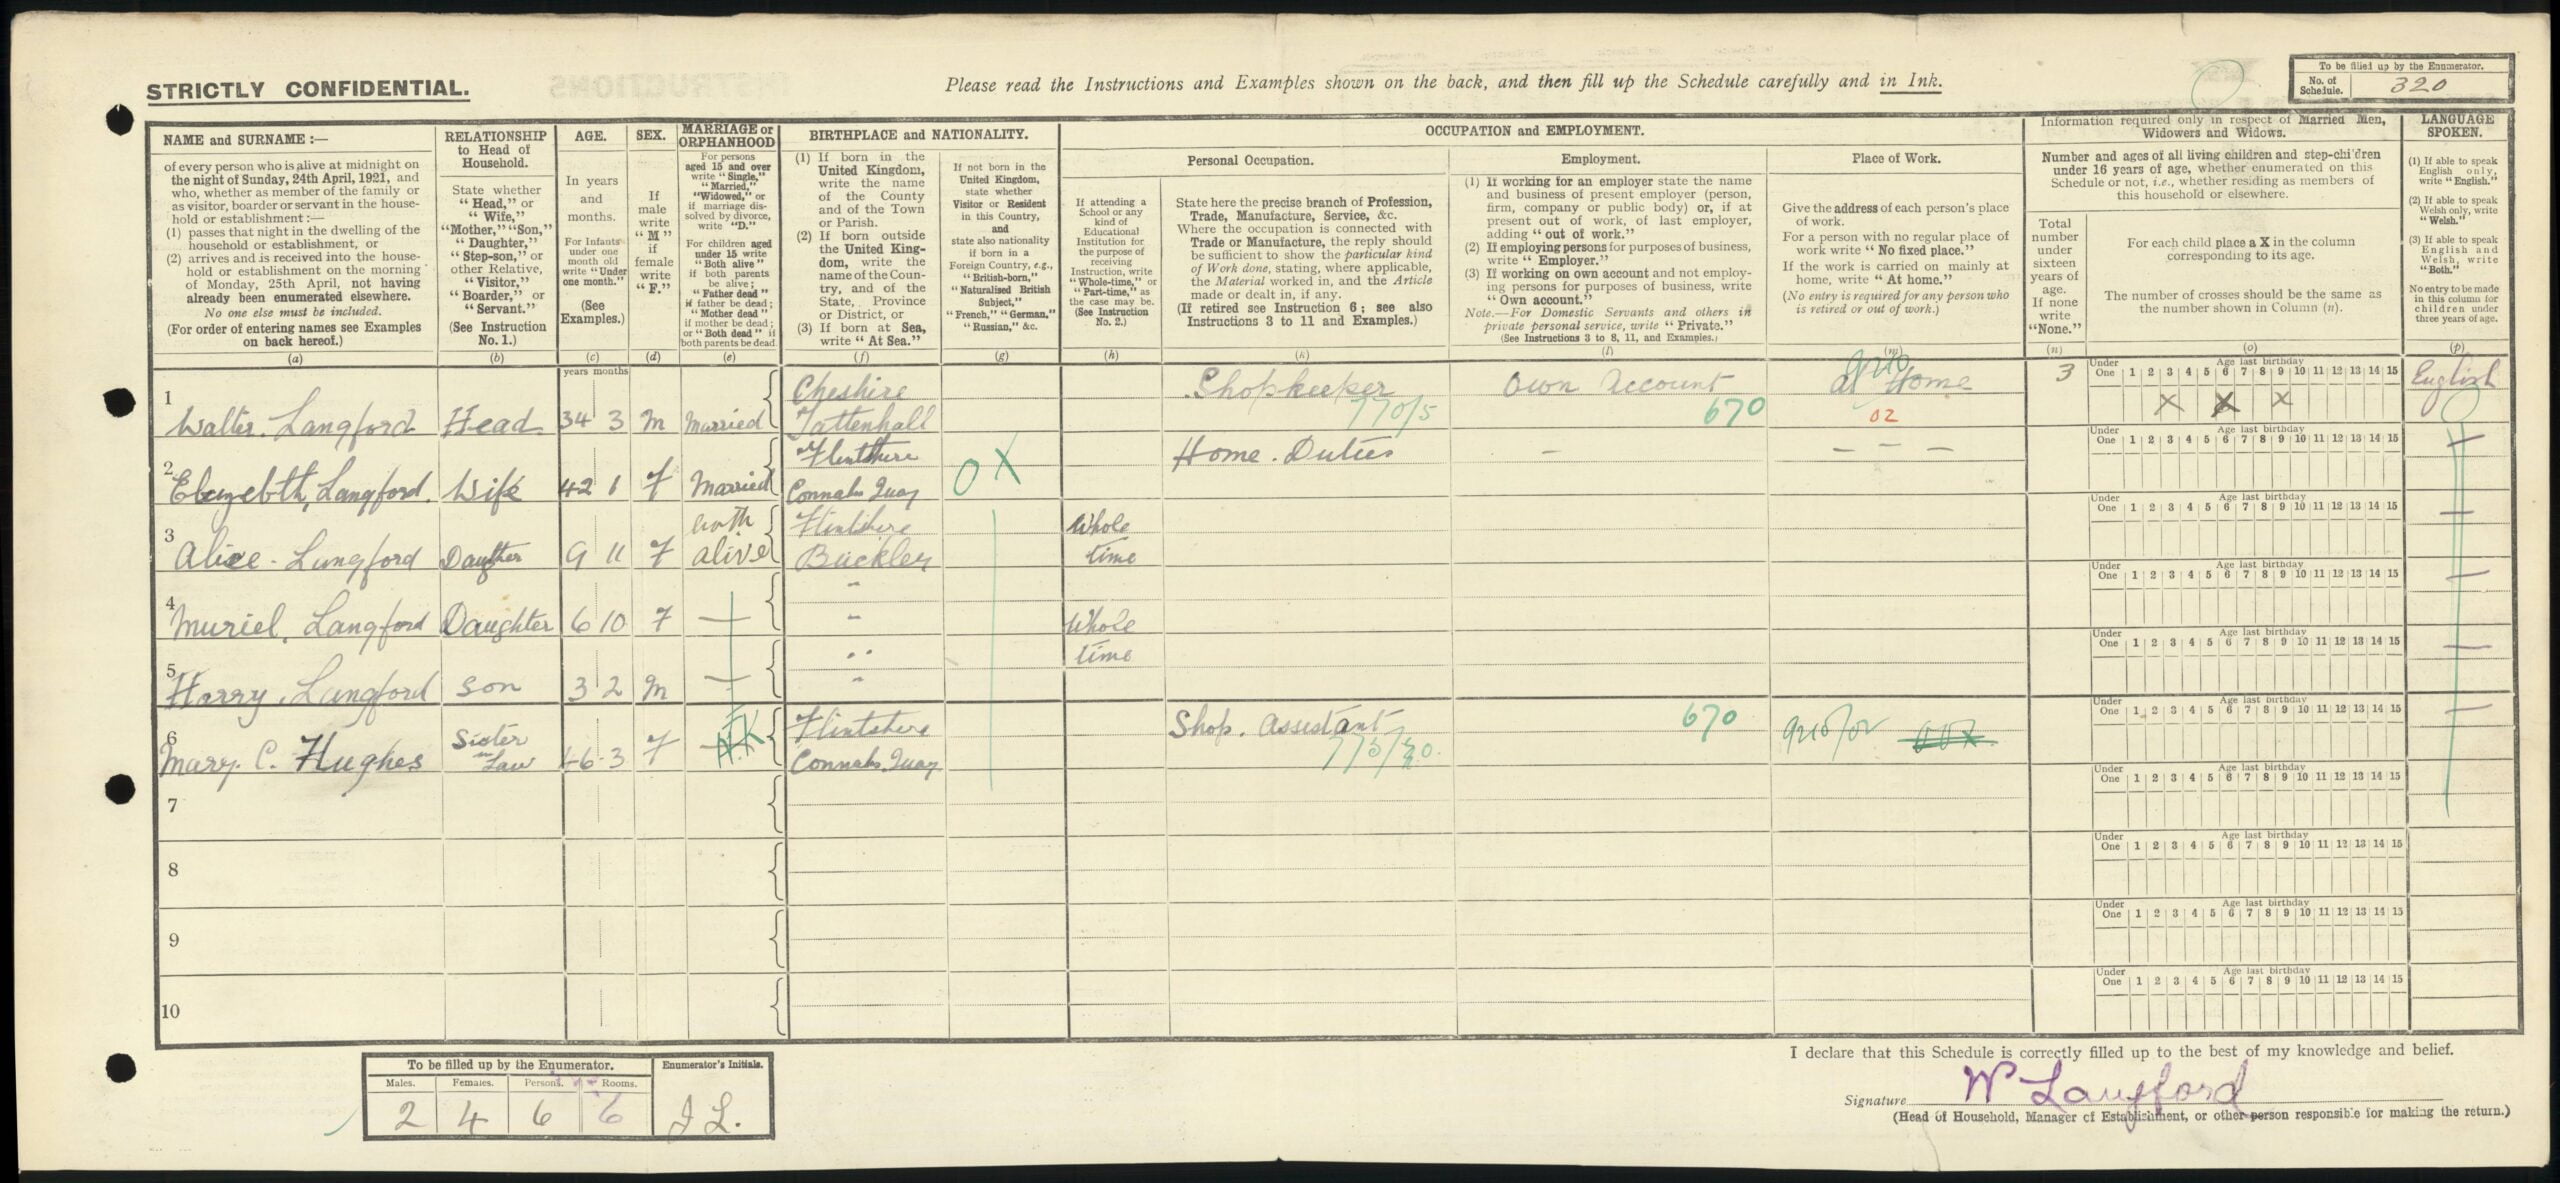 STRICTLY CONFIDENTIAL.
Please read the Instructions and Examples shown on the back, and then fill up the Schedule carefully and in Ink.
To be filled up by the Enumerator.
No. of Schedule. 320
NAME and SURNAME :—
of every person who is alive at midnight on
the night of Sunday, 24th April, 1921, and
who, whether as member of the family or
as visitor, boarder or servant in the house-
hold or establishment :—
(1) passes that night in the dwelling of the
household or establishment, or
(2) arrives and is received into the house-
hold or establishment on the morning
of Monday, 25th April, not having
already been enumerated elsewhere.
No one else must be included.
(For order of entering names see Examples
on back hereof.)
(a)
RELATIONSHIP
to Head of
Household.
State whether
"Head," or
"Wife,"
"Mother," "Son,"
"Daughter,"
"Step-son," or
other Relative,
"Visitor,"
"Boarder," or
"Servant."
(See Instruction
No. 1.)
(b)
AGE.
In years
and
months.
For Infants
under one
month old
write "Under
one month."
(See
Examples.)
(c)
SEX.
If
male
write
"M"
if
female
write
"F."
(d)
MARRIAGE or
ORPHANHOOD
For persons
aged 15 and over
write "Single,"
"Married,"
"Widowed," or
if marriage dis-
solved by divorce,
write "D."
For children aged
under 15 write
"Both alive"
if both parents
be alive;
"Father dead"
if father be dead;
"Mother dead"
if mother be dead;
or "Both dead" if
both parents be dead.
(e)
BIRTHPLACE and NATIONALITY.
(1) If born in the
United Kingdom,
write the name
of the County
and of the Town
or Parish.
(2) If born outside
the United King-
dom, write the
name of the Coun-
try, and of the
State, Province
or District, or
(3) If born at Sea,
write "At Sea."
(f)
If not born in the
United Kingdom,
state whether
Visitor or Resident
in this Country,
and
state also nationality
if born in a
Foreign Country, e.g.,
"British-born,"
"Naturalised British
Subject,"
"French," "German,"
"Russian," &c.
(g)
OCCUPATION and EMPLOYMENT.
If attending a
School or any
kind of
Educational
Institution for
the purpose of
receiving
Instruction, write
"Whole-time," or
"Part-time," as
the case may be.
(See Instruction
No. 2.)
(h)
Personal Occupation.
State here the precise branch of Profession,
Trade, Manufacture, Service, &c.
Where the occupation is connected with
Trade or Manufacture, the reply should
be sufficient to show the particular kind
of Work done, stating, where applicable,
the Material worked in, and the Article
made or dealt in, if any.
(If retired see Instruction 6; see also
Instructions 3 to 11 and Examples.)
(k)
Employment.
(1) If working for an employer state the name
and business of present employer (person,
firm, company or public body) or, if at
present out of work, of last employer,
adding "out of work."
(2) If employing persons for purposes of business,
write "Employer."
(3) If working on own account and not employ-
ing persons for purposes of business, write
"Own account."
Note.—For Domestic Servants and others in
private personal service, write "Private."
(See Instructions 3 to 8, 11, and Examples.)
(l)
Place of Work.
Give the address of each person's place
of work.
For a person with no regular place of
work write "No fixed place."
If the work is carried on mainly at
home, write "At home."
(No entry is required for any person who
is retired or out of work.)
(m)
Information required only in respect of Married Men,
Widowers and Widows.
Number and ages of all living children and step-children
under 16 years of age, whether enumerated on this
Schedule or not, i.e., whether residing as members of
this household or elsewhere.
Total
number
under
sixteen
years of
age.
If none
write
"None."
(n)
For each child place a X in the column
corresponding to its age.
The number of crosses should be the same as
the number shown in Column (n).
(o)
LANGUAGE
SPOKEN.
(1) If able to speak
English only,
write "English."
(2) If able to speak
Welsh only, write
"Welsh."
(3) If able to speak
English and
Welsh, write
"Both."
No entry to be made
in this column for
children under
three years of age.
(p)
years months
Under One Age last birthday 1 2 3 4 5 6 7 8 9 10 11 12 13 14 15
1 Walter. Langford Head. 34 3 M Married Cheshire Tattenhall Shopkeeper 770/5 Own Account 670 at Home 02 3 X X X English
Under One Age last birthday 1 2 3 4 5 6 7 8 9 10 11 12 13 14 15
2 Langford. Wife 42 1 F Married Flintshire Connahs Quay O X Home. Duties — — — —
Under One Age last birthday 1 2 3 4 5 6 7 8 9 10 11 12 13 14 15
3 Alice - Langford Daughter 9 11 F both alive Flintshire Buckley Whole time —
Under One Age last birthday 1 2 3 4 5 6 7 8 9 10 11 12 13 14 15
4 Muriel. Langford Daughter 6 10 F — " " Whole time —
Under One Age last birthday 1 2 3 4 5 6 7 8 9 10 11 12 13 14 15
5 Harry. Langford Son 3 2 M — " " —
Under One Age last birthday 1 2 3 4 5 6 7 8 9 10 11 12 13 14 15
6 Mary. C. Hughes Sister in Law 46 3 F N.K Flintshire Connahs. Quay Shop. Assistant 670 —
Under One Age last birthday 1 2 3 4 5 6 7 8 9 10 11 12 13 14 15
7
Under One Age last birthday 1 2 3 4 5 6 7 8 9 10 11 12 13 14 15
8
Under One Age last birthday 1 2 3 4 5 6 7 8 9 10 11 12 13 14 15
9
Under One Age last birthday 1 2 3 4 5 6 7 8 9 10 11 12 13 14 15
10
To be filled up by the Enumerator. Enumerator's Initials.
Males. Females. Persons. Rooms.
2 4 6 6 J L.
I declare that this Schedule is correctly filled up to the best of my knowledge and belief.
Signature W Langford
(Head of Household, Manager of Establishment, or other person responsible for making the return.)